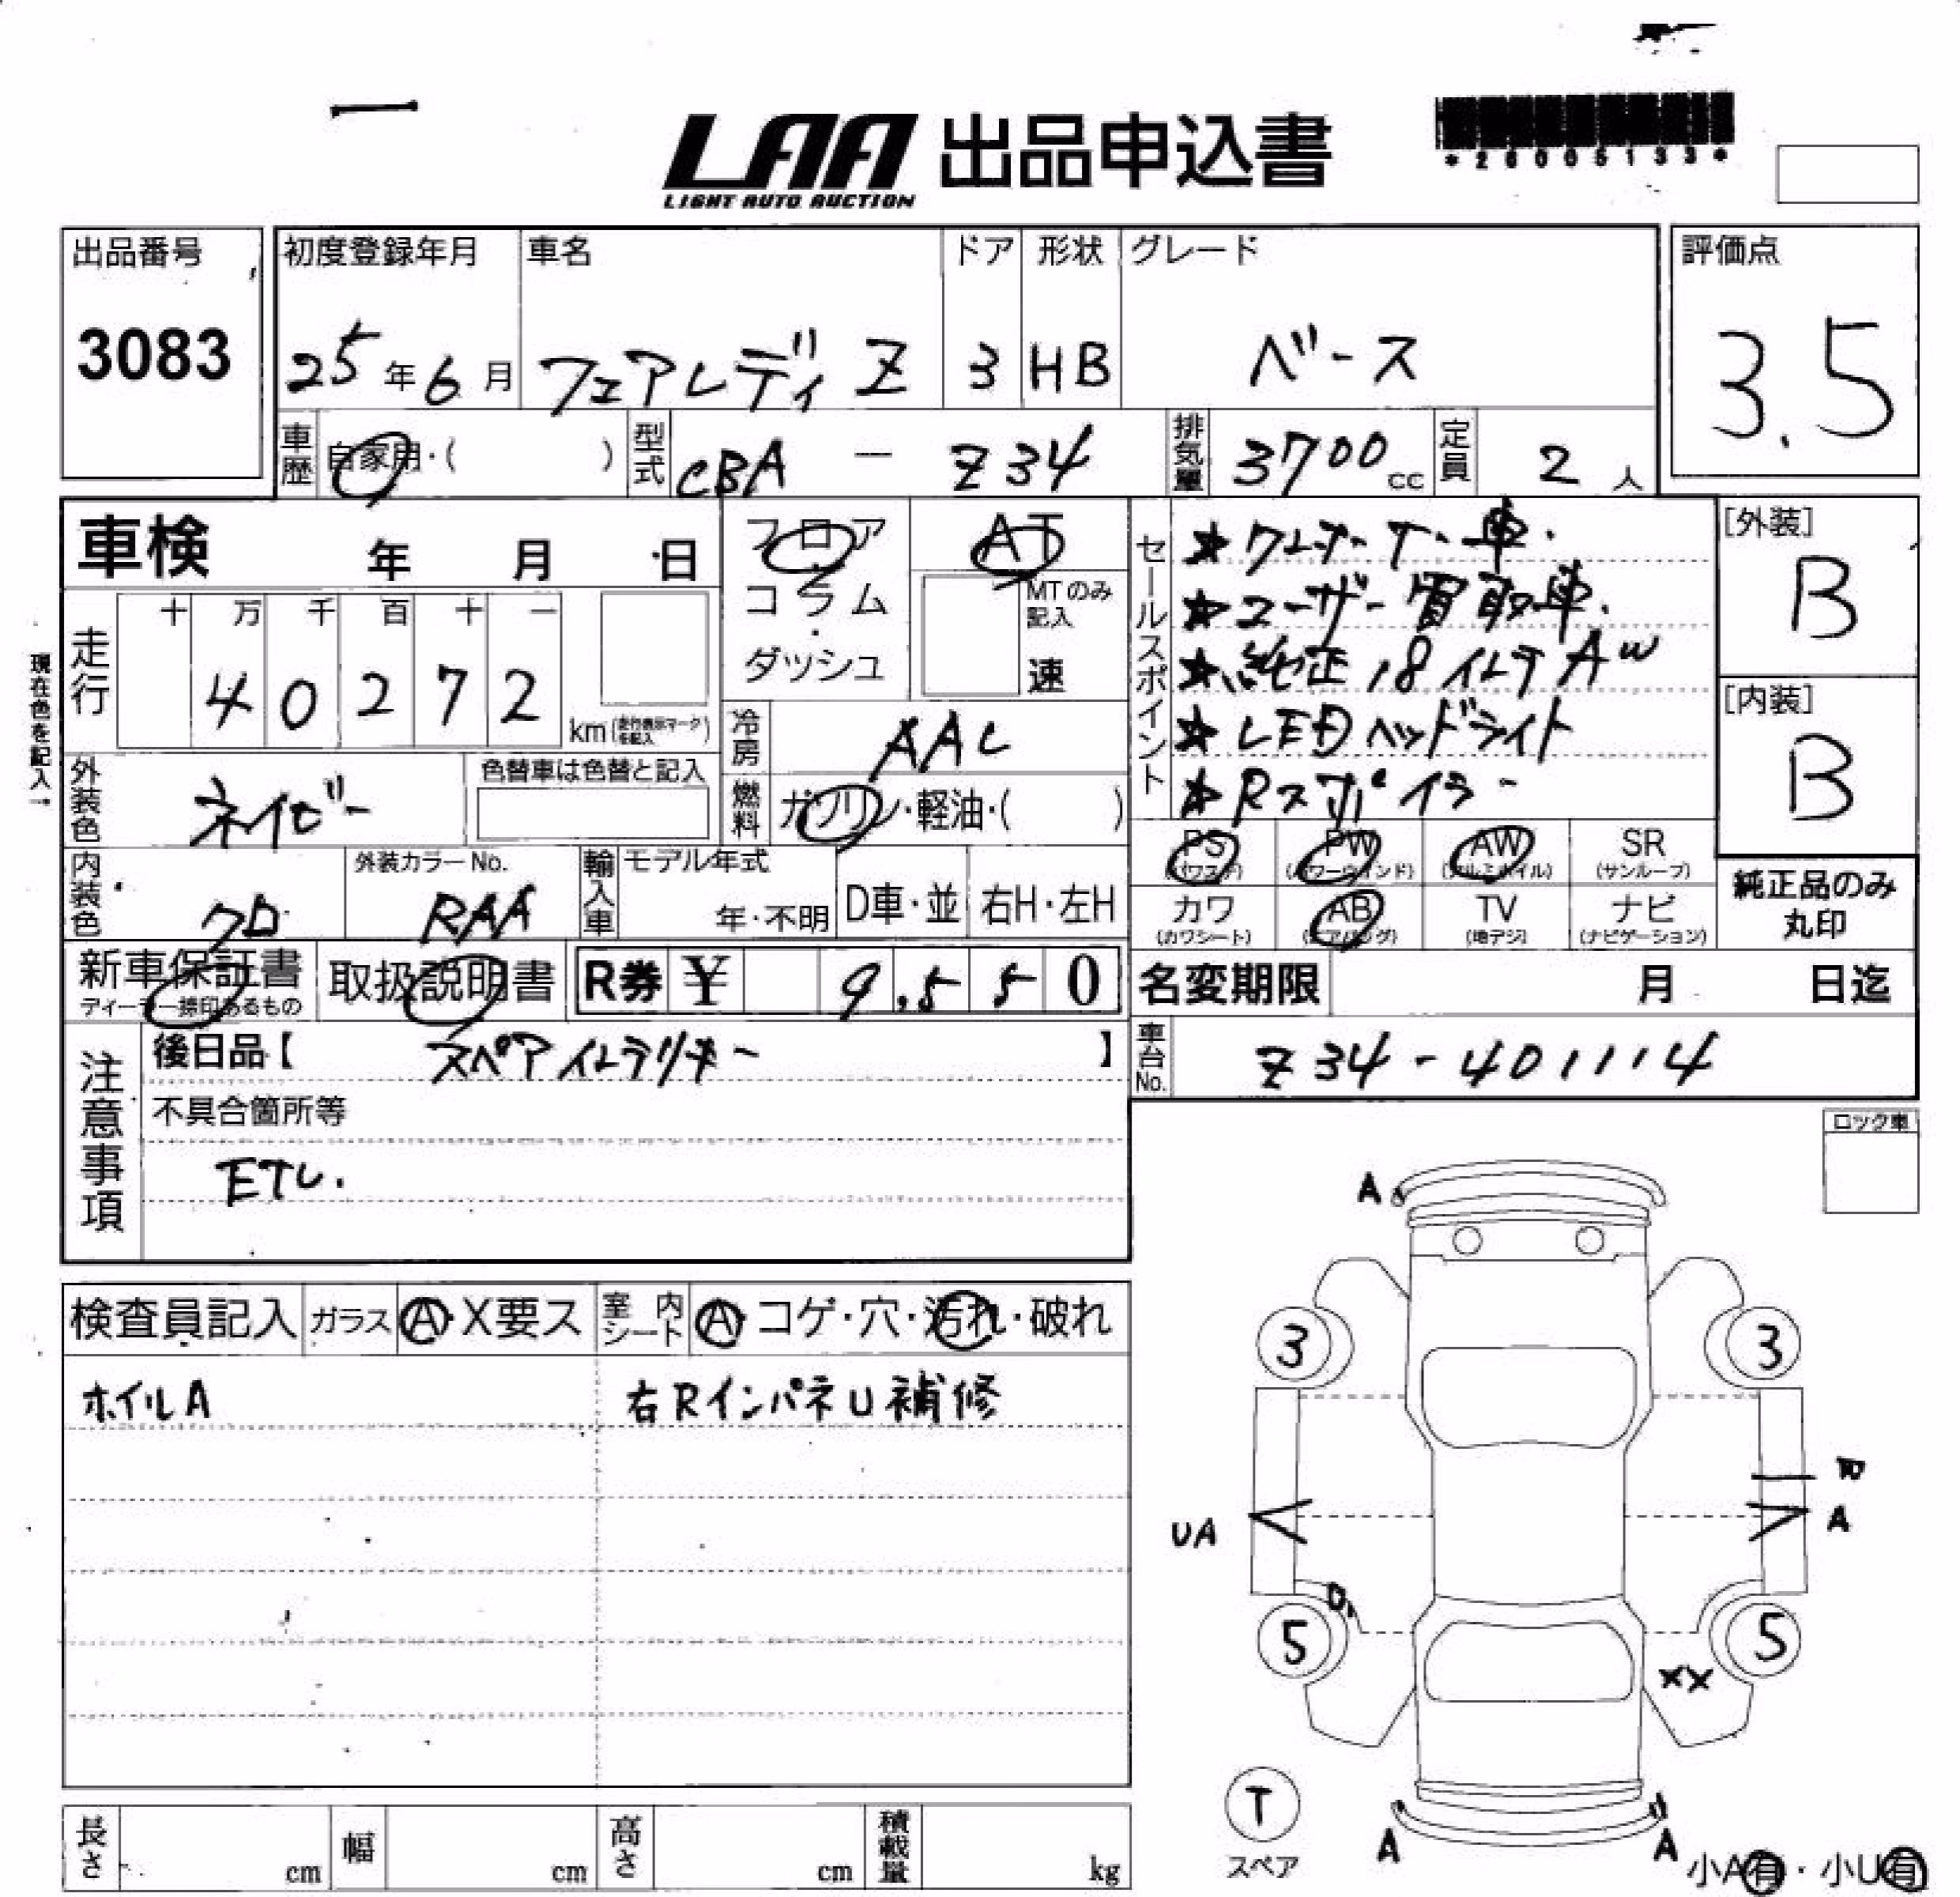 LAA 出品申込書
LIGHT AUTO AUCTION
*26005133*
出品番号
3083
初度登録年月
25年6月
車名
フェアレディ Z
ドア
3
形状
HB
グレード
ベース
評価点
3.5
車歴 自家用・( )
型式 CBA - Z34
排気量 3700cc
定員 2人
車検 年 月 日
フロア
コラム
ダッシュ
AT
MTのみ記入
速
走行
十 万 千 百 十 一
4 0 2 7 2
km(走行表示マークを記入)
現在色を記入→
冷房 AAC
燃料 ガソリン・軽油・( )
外装色 ネイビー
色替車は色替と記入
内装色 クロ
外装カラーNo.
RAA
輸入車 モデル年式
年・不明
D車・並
右H・左H
セールスポイント
★ワンオーナー車.
★ユーザー買取車.
★純正18インチAW
★LEDヘッドライト
★Rスポイラー
[外装]
B
[内装]
B
PS (パワステ)
PW (パワーウインド)
AW (アルミホイル)
SR (サンルーフ)
カワ (カワシート)
AB (エアバッグ)
TV (地デジ)
ナビ (ナビゲーション)
純正品のみ
丸印
新車保証書
ディーラー捺印あるもの
取扱説明書
R券 ¥ 9,550
名変期限 月 日迄
車台No. Z34-401114
注意事項
後日品【 】
不具合箇所等
ETC.
ロック車
検査員記入
ガラス A・X要ス
室内シート A・コゲ・穴・汚れ・破れ
ホイルA
右RインパネU補修
A
3 3
UA
A
5 5
XX
T
スペア
A A
小A有・小U有
長さ cm
幅 cm
高さ cm
積載量 kg